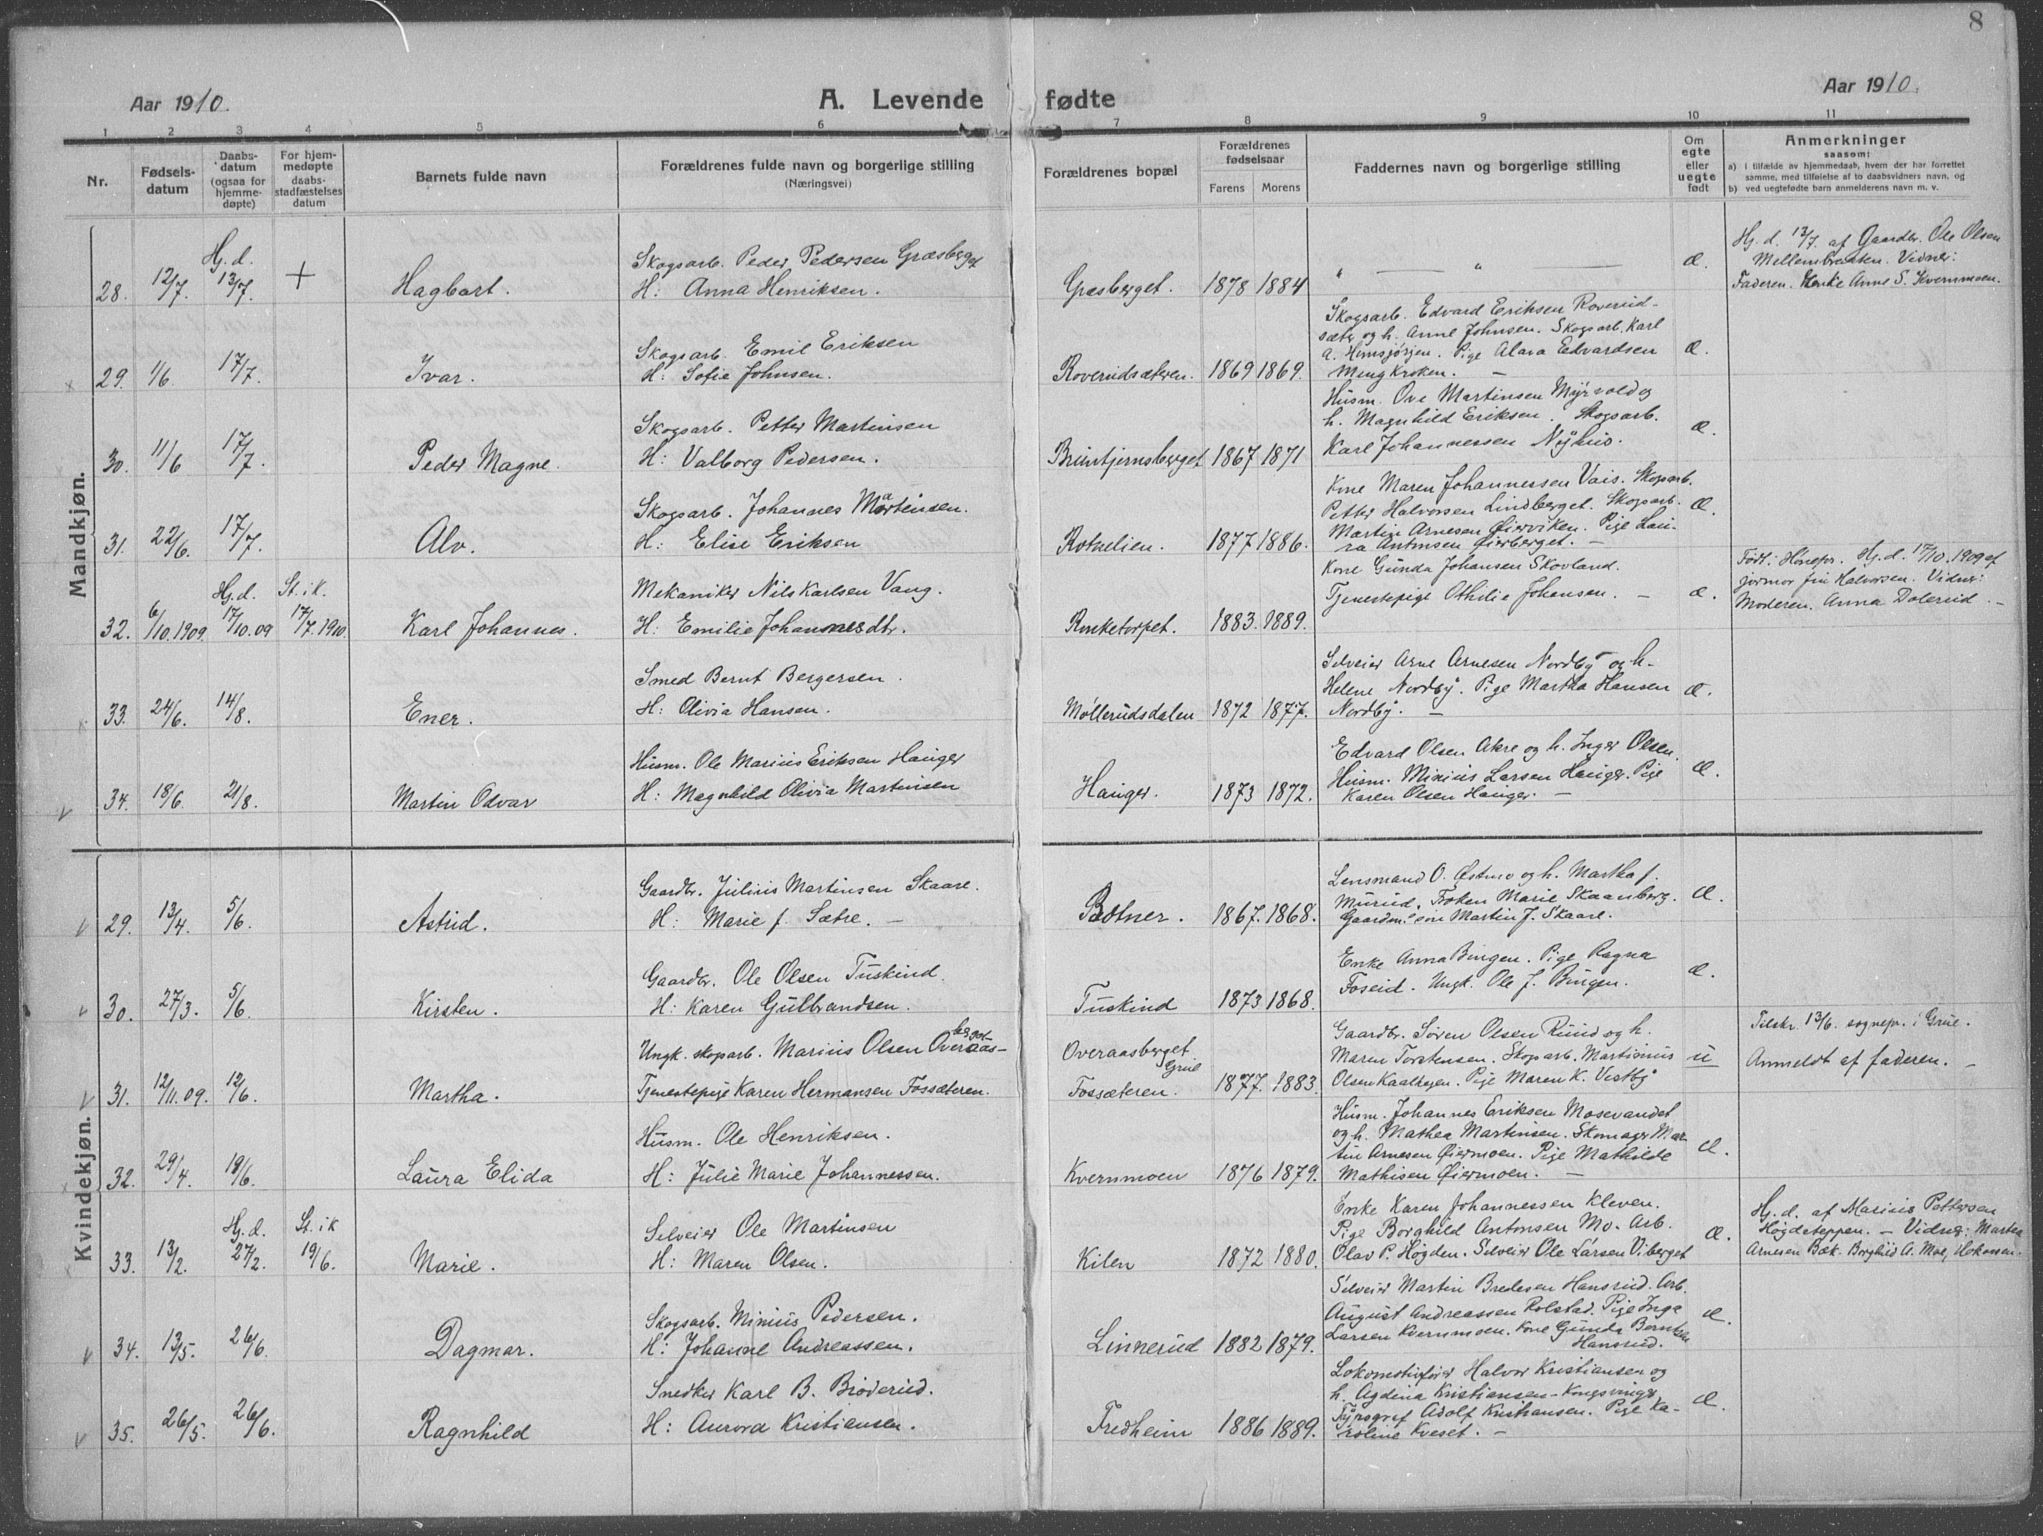 8
Aar 1910.
A. Levende fødte
Aar 1910.
1 2 3 4 5 6 7 8 9 10 11
Nr.
Fødsels-
datum
Daabs-
datum
(ogsaa for
hjemme-
døpte)
For hjem-
medøpte
daabs-
stadfæstelses
datum
Barnets fulde navn
Forældrenes fulde navn og borgerlige stilling
(Næringsvei)
Forældrenes bopæl
Forældrenes
fødselsaar
Farens Morens
Faddernes navn og borgerlige stilling
Om
egte
eller
uegte
født
Anmerkninger
saasom:
a) i tilfælde av hjemmedaab, hvem der har forrettet
samme, med tilføielse af to daabsvidners navn, og
b) ved uegtefødte barn anmelderens navn m. v.
Mandkjøn.
28. 12/7. Hj.d. 13/7. + Hagbart.
Skogsarb. Peder Pedersen Græsberget
H: Anna Henriksen.
Græsberget. 1878 1884
" — " — Æ.
Hj. d. 13/7 af Gaardbr. Ole Olsen
Mellembraaten. Vidner:
Faderen. Enke Anne S. Kvernmoen.
29. 1/6 17/7. Ivar.
Skogsarb. Emil Eriksen
H: Sofie Johnsen.
Roverudsæteren. 1869 1869.
Skogsarb. Edvard Eriksen Roverud-
sæter og h. Anne Johnsen. Skogsarb. Karl
A. Hemsjørjen. Pige Alara Edvardsen
Mengkroken. —
Æ.
30. 11/6 17/7. Peder Magne.
Skogsarb. Petter Martinsen
H: Valborg Pedersen.
Bruntjernsberget 1867 1871
Husm. Ove Martinsen Myrvold og
h. Magnhild Eriksen. Skogsarb.
Karl Johannessen Nyhus.
Æ.
31. 22/6. 17/7. Alv.
Skogsarb. Johannes Martinsen.
H: Elise Eriksen
Rotnelien. 1877 1886.
Kone Maren Johannessen Vais. Skogsarb.
Petter Halvorsen Lindberget. Skogsarb.
Martin Arnesen Øierviken. Pige Lau-
ra Antonsen Øierberget. —
Æ.
32. 6/10.1909. Hj.d. 17/10.09 St. i k. 17/7.1910. Karl Johannes.
Mekaniker Nils Karlsen Vang.
H: Emilie Johannesdtr.
Ronketorpet. 1883. 1889.
Kone Gunda Johansen Skovland.
Tjenestepige Othilie Johansen. —
Æ.
Født i Hønefos. Hj. d. 17/10.1909 af
jormor fru Halvorsen. Vidner:
Moderen. Anna Dolerud. —
33. 24/6. 14/8. Ener.
Smed Bernt Bergersen.
H: Olivia Hansen.
Møllerudsdalen 1872 1877.
Selveier Arne Arnesen Nordby og h.
Helene Nordby. Pige Martha Hansen
Nordby. —
Æ.
34. 18/6. 21/8. Martin Odvar
Husm. Ole Marius Eriksen Hauger
H: Magnhild Olivia Martinsen
Hauger. 1873 1872.
Edvard Olsen Akre og h. Inger Olsen.
Husm. Minius Larsen Hauger. Pige
Karen Olsen Hauger. —
Æ.
Kvindekjøn.
29. 13/4. 5/6. Astrid.
Gaardbr. Julius Martinsen Skaare.
H: Marie f. Sætre. —
Botner. 1867. 1868.
Lensmand O. Østmo og h. Martha f.
Murud. Frøken Marie Skaanberg.
Gaardm. søn Martin J. Skaare.
Æ.
30. 27/3. 5/6. Kirsten.
Gaardbr. Ole Olsen Tuskind.
H: Karen Gulbrandsen.
Tuskind 1873 1868.
Enke Anna Bingen. Pige Ragna
Foseid. Ungk. Ole J. Bingen.
Æ.
31. 12/11.09. 12/6. Martha.
Ungk. skogsarb. Marius Olsen Overaas-
berget
Tjenestepige Karen Hermansen Fossæteren.
Overaasberget
Grue
Fossæteren. 1877. 1883.
Gaardbr. Søren Olsen Ruud og h.
Maren Torstensen. Skogsarb. Martinius
Olsen Kaalhagen. Pige Maren K. Vestby
u
Tilskr. 13/6. sognepr. i Grue.
Anmeldt af faderen. —
32. 29/4. 19/6. Laura Elida
Husm. Ole Henriksen.
H: Julie Marie Johannessen.
Kvernmoen 1876 1879.
Husm. Johannes Eriksen Mosevandet
og h. Mathea Martinsen. Skomager Mar-
tin Arnesen Øiermoen. Pige Mathilde
Mathisen Øiermoen. —
Æ.
33. 13/2. Hj.d. 27/2. St. i k 19/6. Marie.
Selveier Ole Martinsen
H: Maren Olsen.
Kilen 1872 1880.
Enke Karen Johannessen Kleven.
Pige Borghild Antonsen Mo. Arb.
Olav P. Høgden. Selveier Ole Larsen Viberget
Æ.
Hj. d. af Marius Pettersen
Høgdeteppen. — Vidner: Martea
Arnesen Bæk. Borghild A. Moe, Hokaasen.
34. 13/5. 26/6. Dagmar.
Skogsarb. Minius Pedersen.
H: Johanne Andreassen.
Linnerud 1882 1879.
Selveier Martin Bredesen Hansrud. Arb.
August Andreassen Rolstad. Pige Inga
Larsen Kvernmoen. Kone Gunda Berntsen
Hansrud.
Æ.
35. 26/5. 26/6. Ragnhild
Snedker Karl B. Broderud.
H: Aurora Kristiansen.
Fredheim 1886 1889.
Lokomotivfører Halvor Kristiansen og
h. Agdena Kristiansen - Kongsvinger
Typograf Adolf Kristiansen. Pige Ka-
roline Kveset. —
Æ.